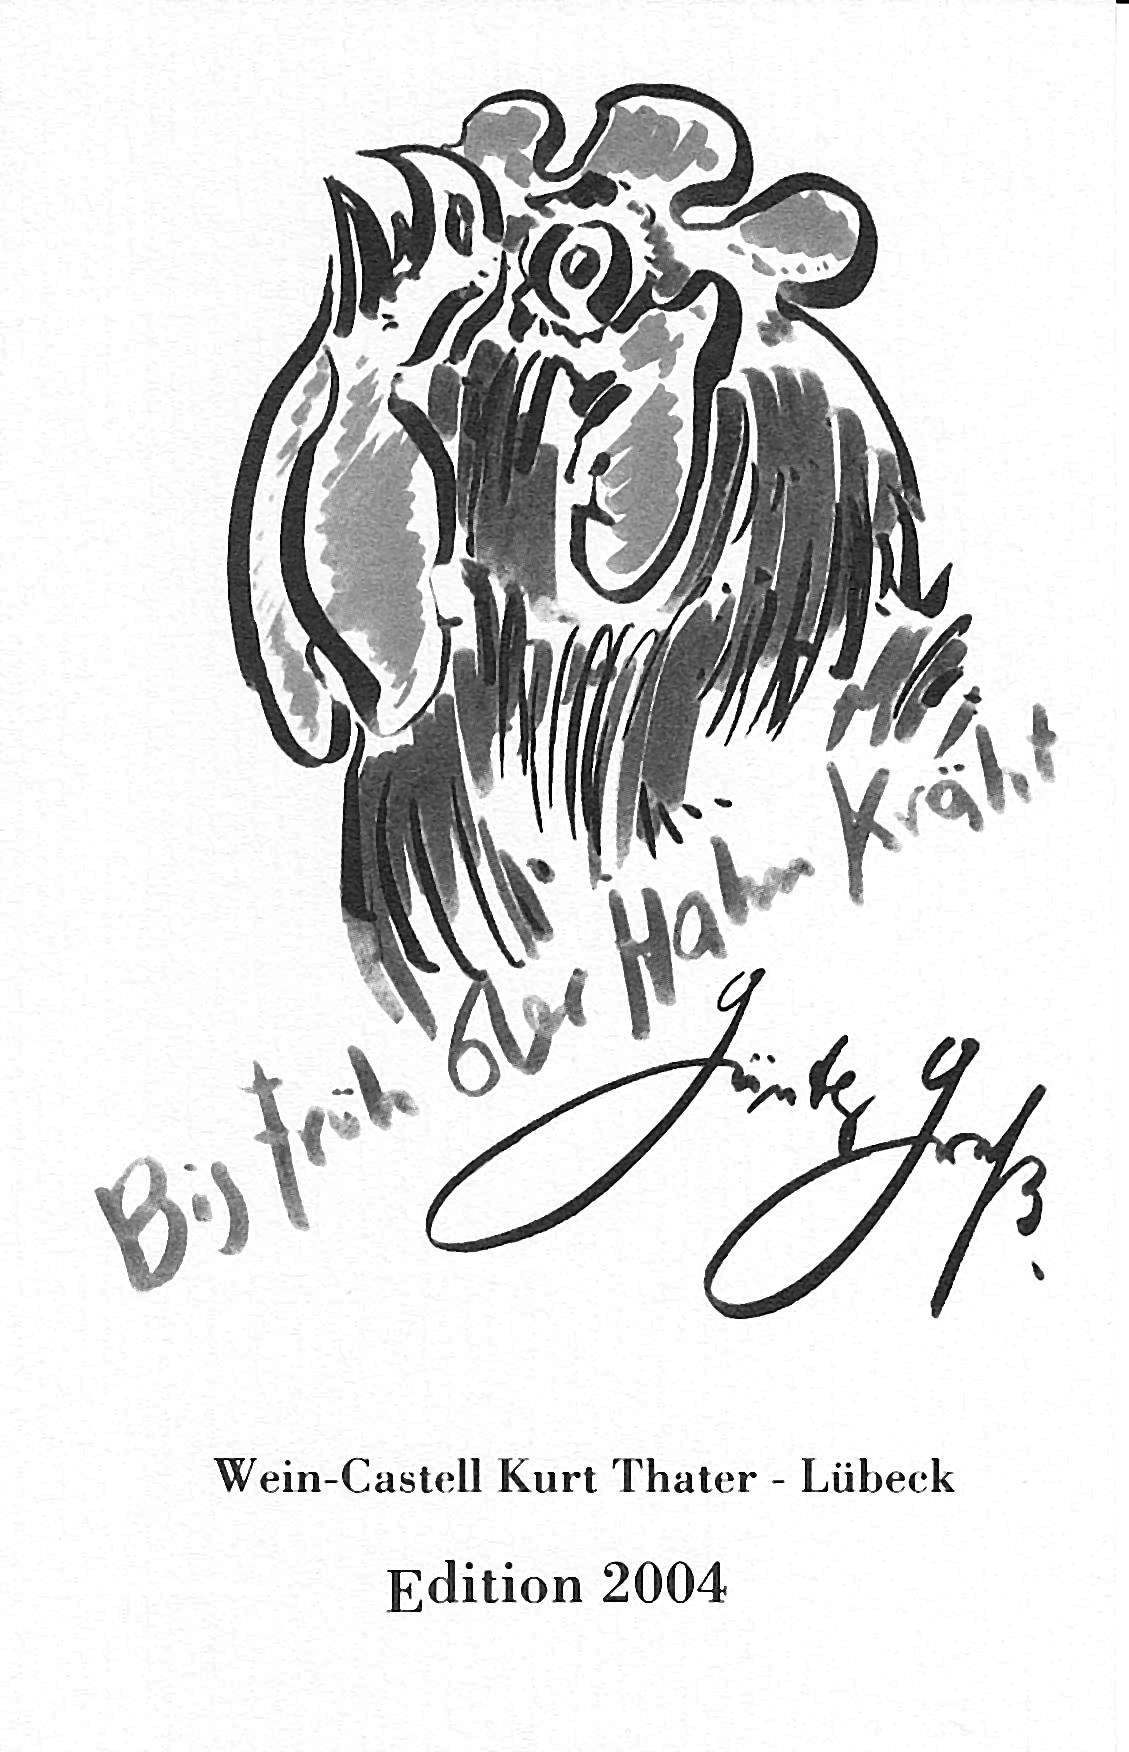 Bis früh der Hahn Kräht
Günter Graß.
Wein-Castell Kurt Thater - Lübeck
Edition 2004